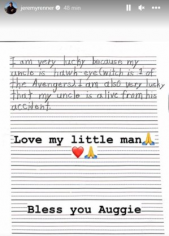 jeremyrenner 48 m
I am very lucky because my
uncle is hawk eye(witch is 1 of
the Avengers). I are also very lucky
that my uncle is alive from his
accident.
Love my little man🙏
❤️🙏
Bless you Auggie